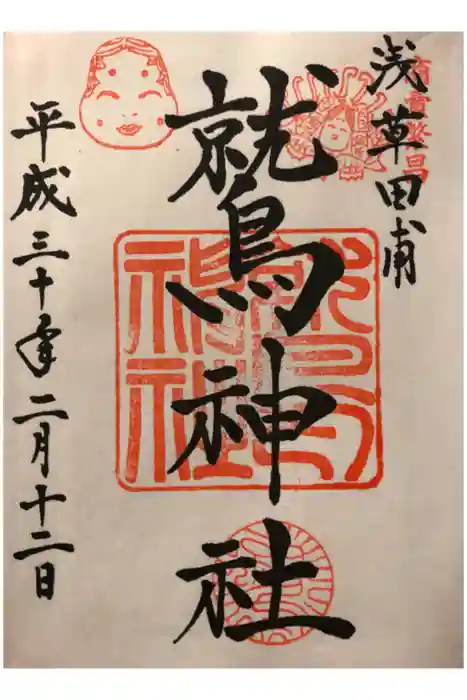 浅草田甫
鷲神社
平成三十年二月十二日